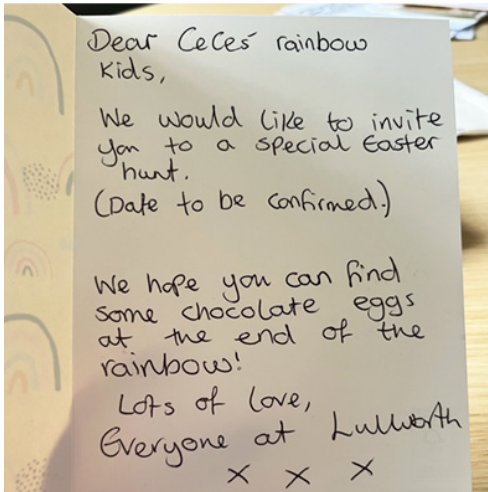 Dear CeCes' rainbow
Kids,
We would like to invite
you to a special Easter
hunt.
(Date to be confirmed.)
We hope you can find
some chocolate eggs
at the end of the
rainbow!
Lots of love,
Everyone at Lullworth
x x x